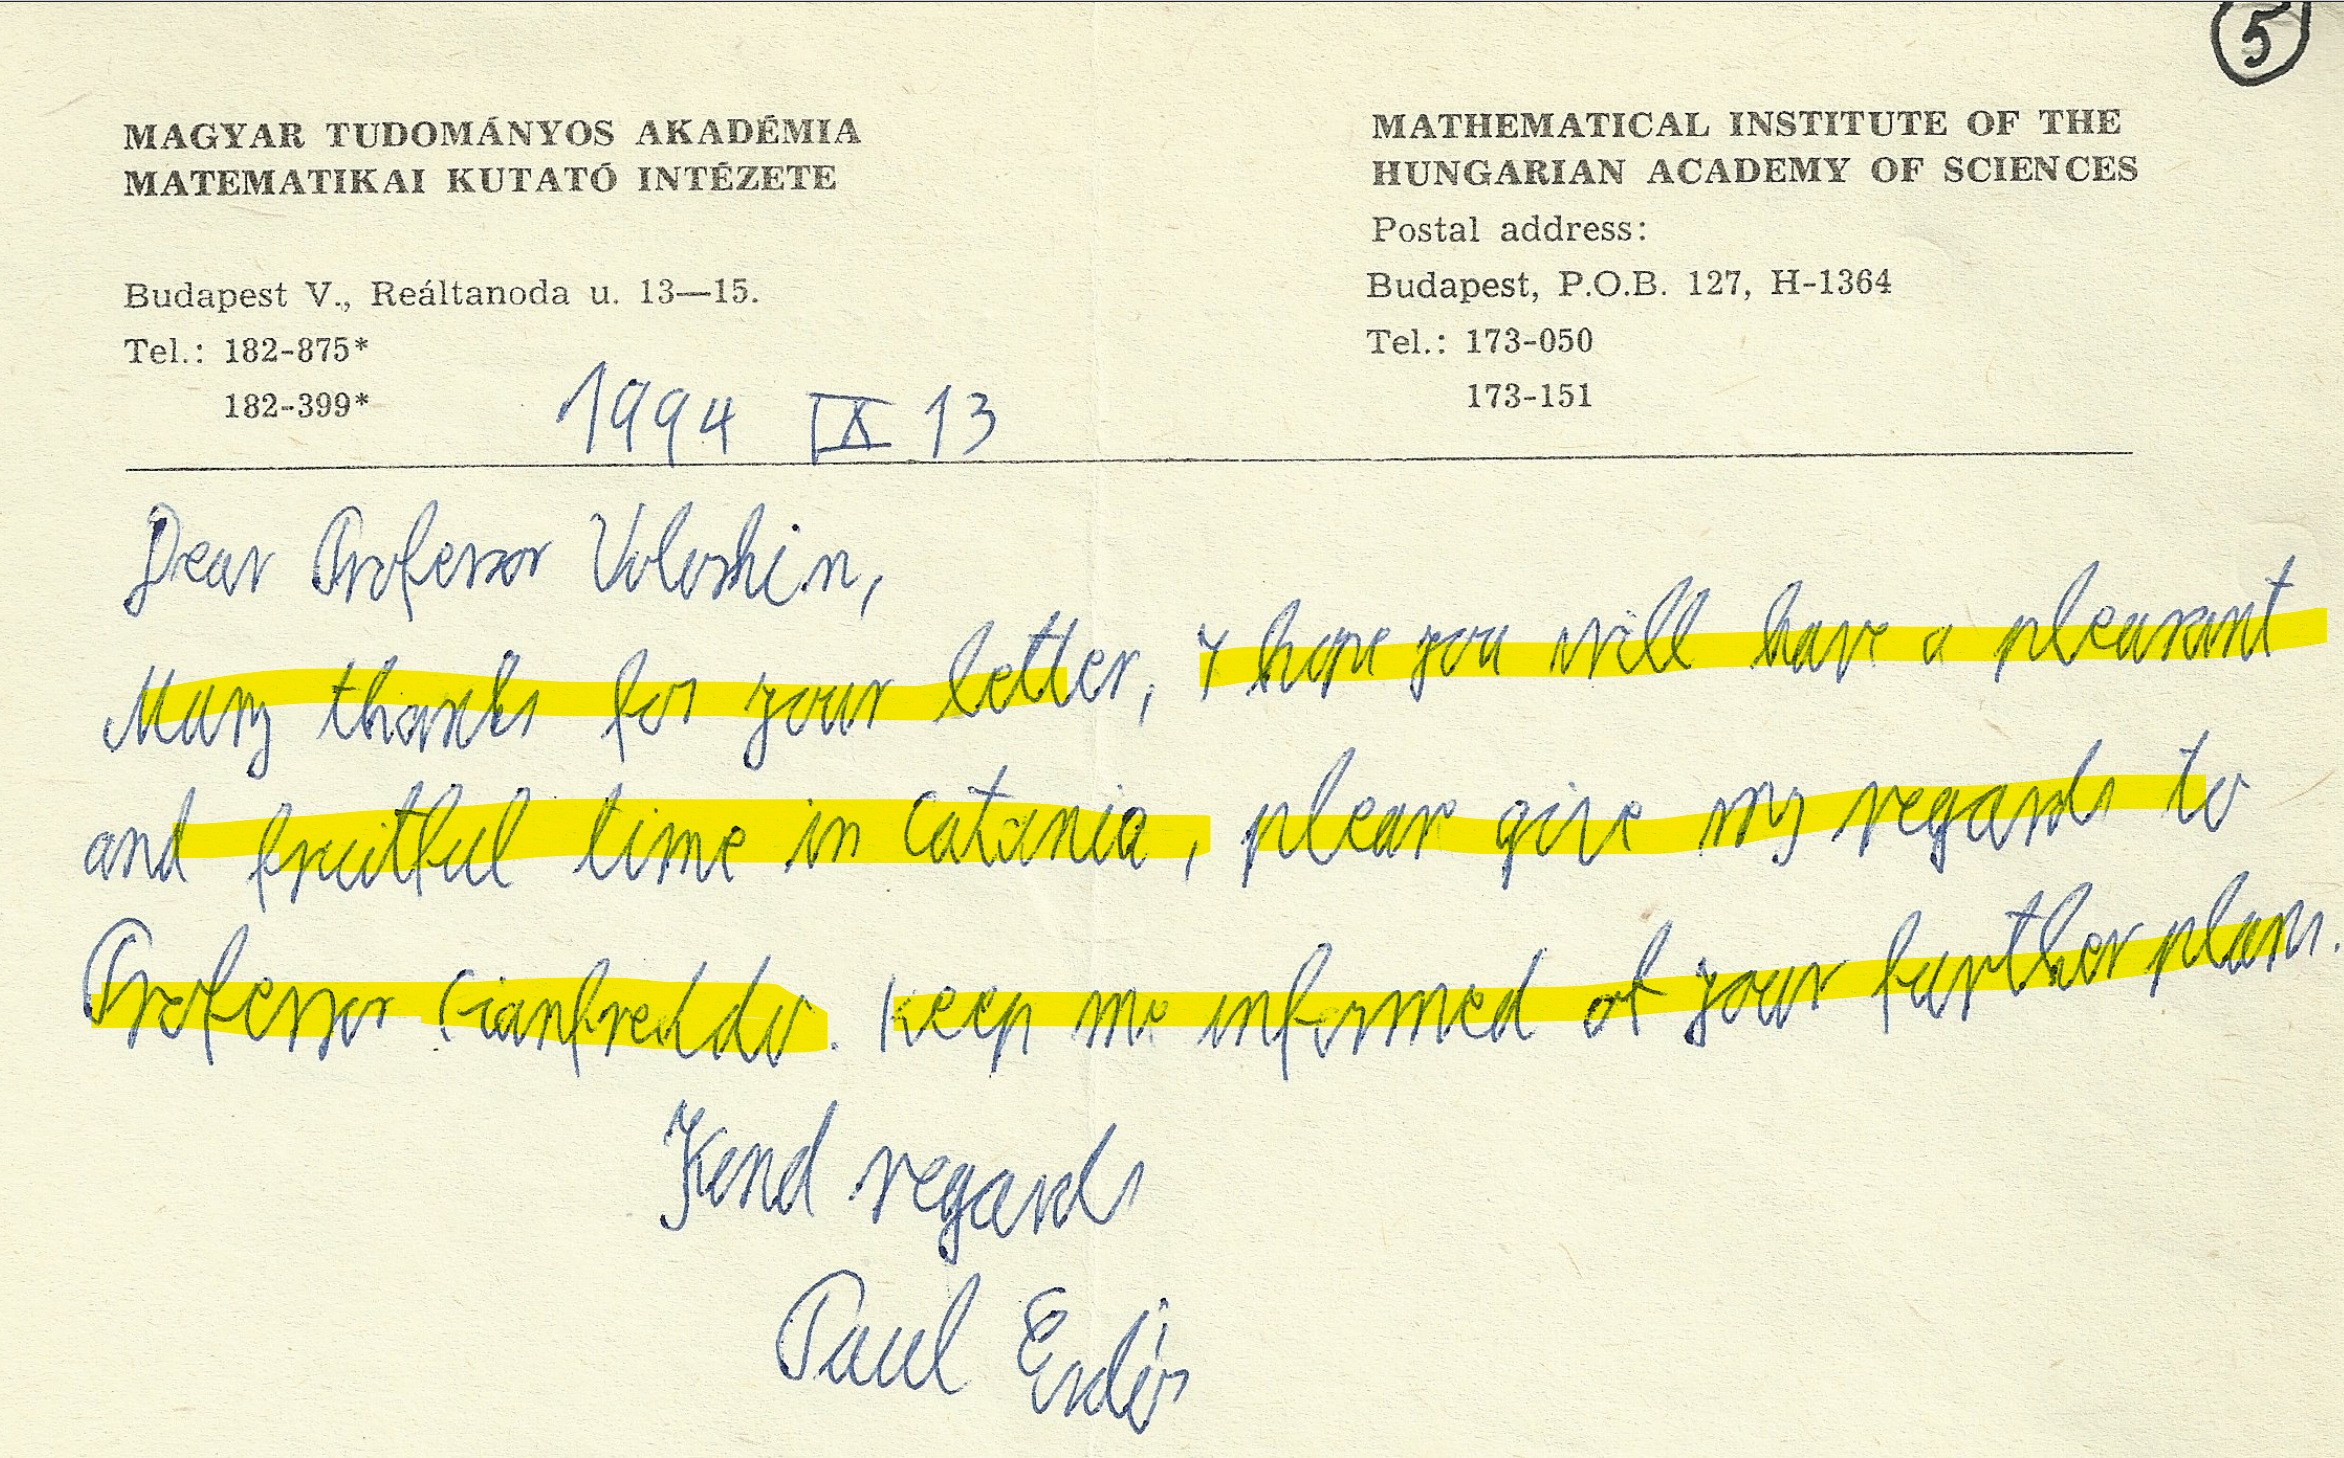 5
MAGYAR TUDOMÁNYOS AKADÉMIA
MATEMATIKAI KUTATÓ INTÉZETE
Budapest V., Reáltanoda u. 13—15.
Tel.: 182-875*
182-399*
MATHEMATICAL INSTITUTE OF THE
HUNGARIAN ACADEMY OF SCIENCES
Postal address:
Budapest, P.O.B. 127, H-1364
Tel.: 173-050
173-151
1994 IX 13
Dear Professor Voloshin,
Many thanks for your letter, I hope you will have a pleasant
and fruitful time in Catania, please give my regards to
Professor Gianfreddo. Keep me informed of your further plans.
Kind regards
Paul Erdős